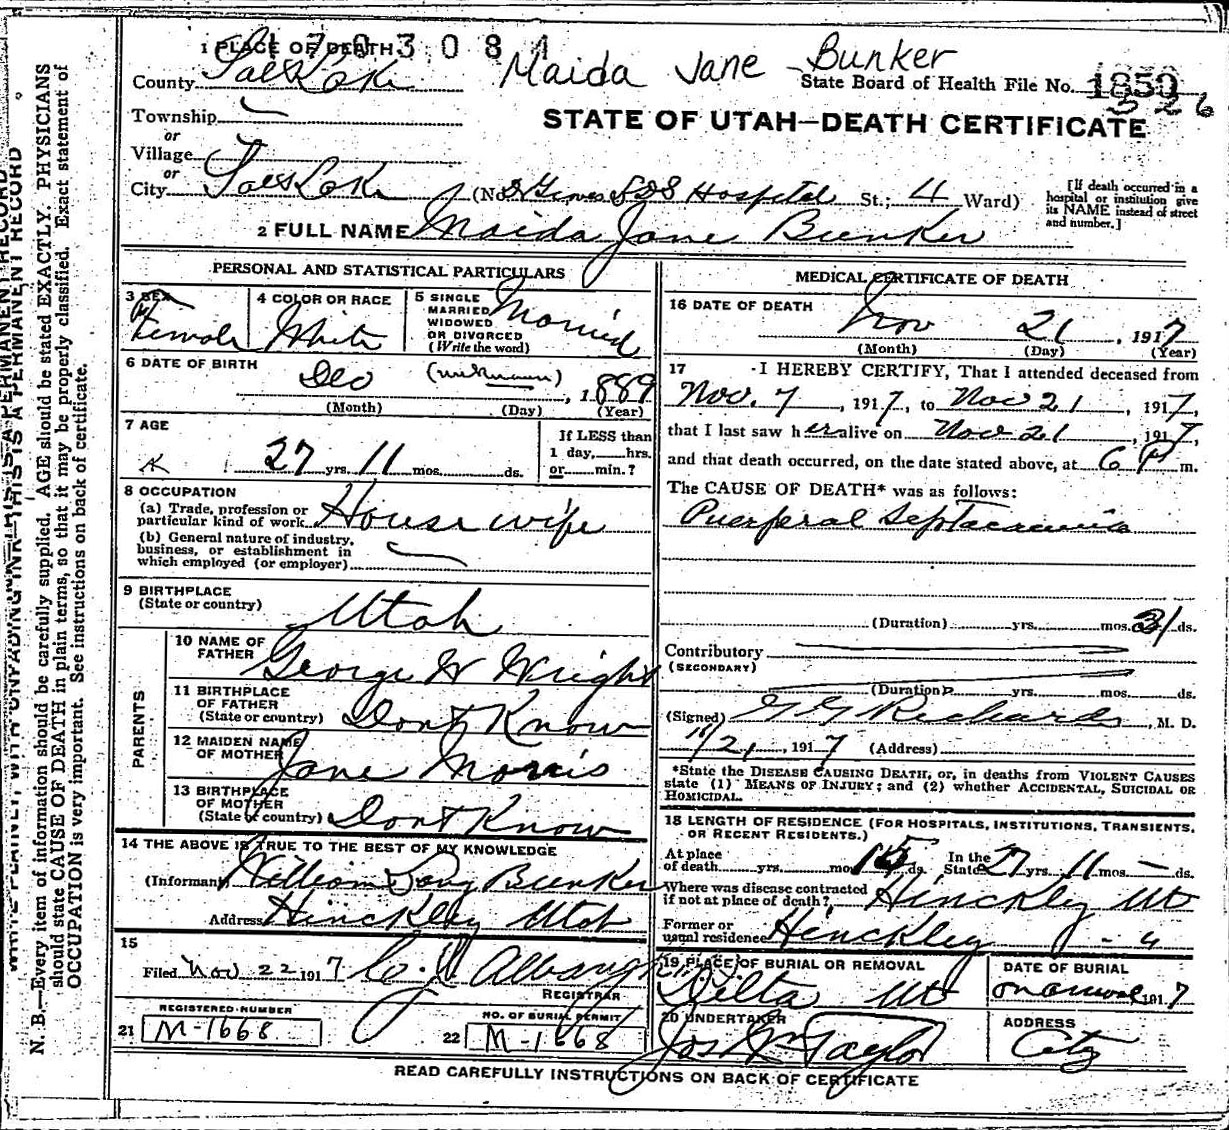 1 PLACE OF DEATH 1703084
Maida Jane Bunker
County Salt Lake
State Board of Health File No. 1850
326
Township
or
Village
or
City Salt Lake (No. LDS Hospital St.; 4 Ward)
[If death occurred in a hospital or institution give its NAME instead of street and number.]
STATE OF UTAH—DEATH CERTIFICATE
2 FULL NAME Maida Jane Bunker
PERSONAL AND STATISTICAL PARTICULARS
3 SEX Female
4 COLOR OR RACE White
5 SINGLE MARRIED WIDOWED OR DIVORCED (Write the word) Married
6 DATE OF BIRTH Dec (unknown), 1889
(Month) (Day) (Year)
7 AGE 27 yrs. 11 mos. ds.
If LESS than 1 day, hrs. or min.?
8 OCCUPATION
(a) Trade, profession or particular kind of work House wife
(b) General nature of industry, business, or establishment in which employed (or employer)
9 BIRTHPLACE (State or country) Utah
PARENTS
10 NAME OF FATHER George W Wright
11 BIRTHPLACE OF FATHER (State or country) Dont Know
12 MAIDEN NAME OF MOTHER Jane Morris
13 BIRTHPLACE OF MOTHER (State or country) Dont Know
14 THE ABOVE IS TRUE TO THE BEST OF MY KNOWLEDGE
(Informant) William Bunker
Address Hinckley Utah
15
Filed Nov 22 1917
REGISTRAR
REGISTERED NUMBER
21 M-1668
NO. OF BURIAL PERMIT
22 M-1668
MEDICAL CERTIFICATE OF DEATH
16 DATE OF DEATH
Nov 21, 1917
(Month) (Day) (Year)
17 I HEREBY CERTIFY, That I attended deceased from
Nov. 7, 1917, to Nov 21, 1917,
that I last saw her alive on Nov 21, 1917,
and that death occurred, on the date stated above, at 6 P m.
The CAUSE OF DEATH* was as follows:
Puerperal Septacaemia
(Duration) yrs. mos. ds.
Contributory
(SECONDARY)
(Duration) yrs. mos. ds.
(Signed) G G Richards, M. D.
11/21, 1917 (Address)
*State the DISEASE CAUSING DEATH, or, in deaths from VIOLENT CAUSES
state (1) MEANS OF INJURY; and (2) whether ACCIDENTAL, SUICIDAL OR
HOMICIDAL.
18 LENGTH OF RESIDENCE (FOR HOSPITALS, INSTITUTIONS, TRANSIENTS,
OR RECENT RESIDENTS.)
At place of death yrs. mos. ds. In the State 27 yrs. 11 mos. — ds.
Where was disease contracted if not at place of death? Hinckley Ut
Former or usual residence Hinckley - 4
19 PLACE OF BURIAL OR REMOVAL
Delta Ut
DATE OF BURIAL
1917
20 UNDERTAKER
Jos Wm Taylor
ADDRESS
City
READ CAREFULLY INSTRUCTIONS ON BACK OF CERTIFICATE
WRITE PLAINLY, WITH UNFADING INK—THIS IS A PERMANENT RECORD
N. B.—Every item of information should be carefully supplied. AGE should be stated EXACTLY. PHYSICIANS
should state CAUSE OF DEATH in plain terms, so that it may be properly classified. Exact statement of
OCCUPATION is very important. See instructions on back of certificate.